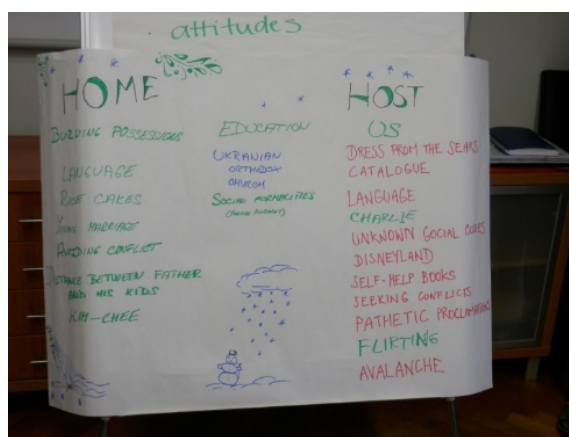 attitudes
HOME
BURNING POSSESSIONS
LANGUAGE
RICE CAKES
YOUNG MARRIAGE
AVOIDING CONFLICT
DISTANCE BETWEEN FATHER
AND HIS KIDS
KIM-CHEE
EDUCATION
UKRANIAN
ORTHODOX
CHURCH
SOCIAL FORMALITIES
HOST
US
DRESS FROM THE SEARS
CATALOGUE
LANGUAGE
CHARLIE
UNKNOWN SOCIAL CODES
DISNEYLAND
SELF-HELP BOOKS
SEEKING CONFLICTS
PATHETIC PROCLAMATIONS
FLIRTING
AVALANCHE